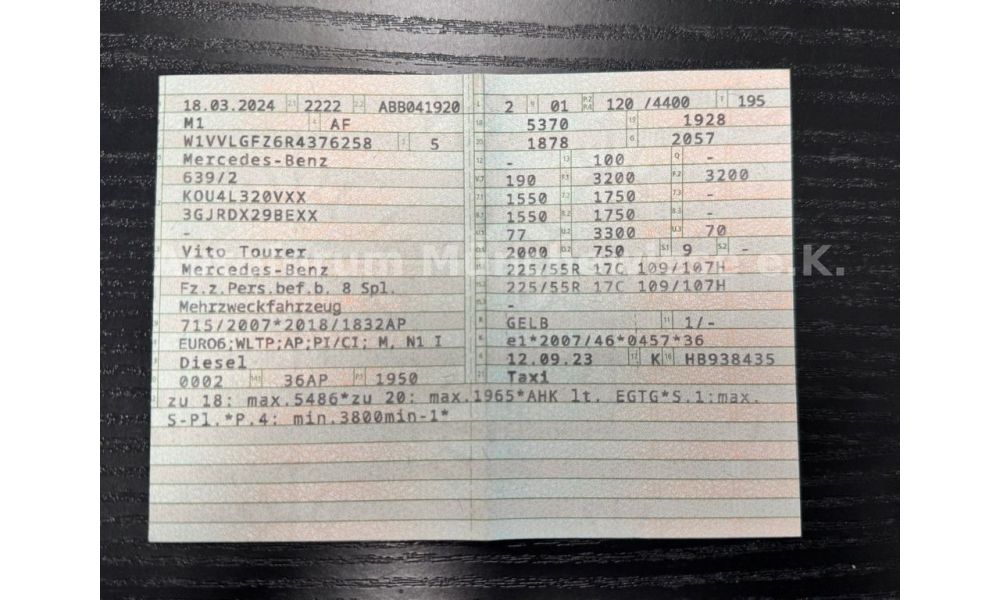 18.03.2024 2.1 2222 2.2 ABB041920
M1 4 AF
W1VVLGFZ6R4376258 3 5
Mercedes-Benz
639/2
KOU4L320VXX
3GJRDX29BEXX
-
Vito Tourer
Mercedes-Benz
Fz.z.Pers.bef.b. 8 Spl.
Mehrzweckfahrzeug
715/2007*2018/1832AP
EURO6;WLTP;AP;PI/CI; M, N1 I
Diesel
0002 36AP P.1 1950
L 2 9 01 P.2 P.4 120 /4400 T 195
18 5370 19 1928
20 1878 G 2057
12 - 13 100 Q -
V.7 190 F.1 3200 F.2 3200
7.1 1550 7.2 1750 7.3 -
8.1 1550 8.2 1750 8.3 -
U.1 77 U.2 3300 U.3 70
O.1 2000 O.2 750 S.1 9 S.2 -
15.1 225/55R 17C 109/107H
15.2 225/55R 17C 109/107H
15.3 -
R GELB 11 1/-
K e1*2007/46*0457*36
6 12.09.23 17 K 16 HB938435
21 Taxi
zu 18: max.5486*zu 20: max.1965*AHK lt. EGTG*S.1:max.
S-Pl.*P.4: min.3800min-1*
e.K.